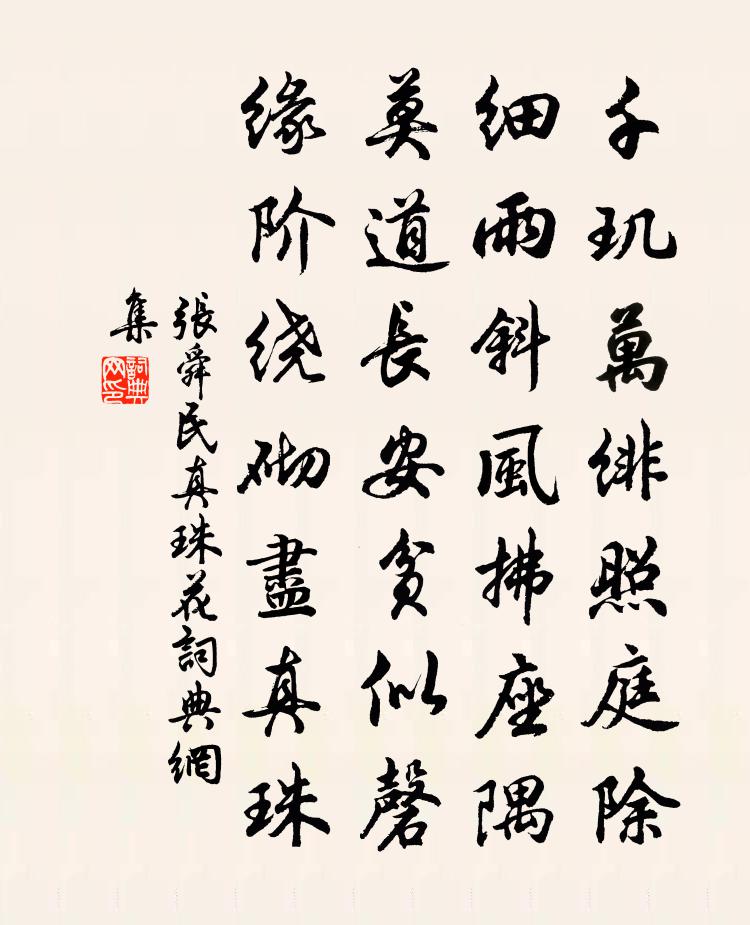 千玑萬緋照庭除
细雨斜風拂座隅
莫道長安貧似磬
缘阶绕砌盡真珠
張舜民真珠花詞典網
集
詞典網印